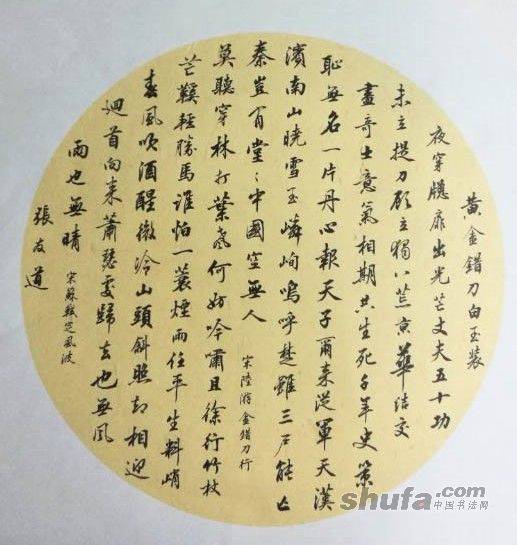 黄金錯刀白玉装
夜穿牕扉出光芒丈夫五十功
未立提刀顾立獨八荒京華結交
盡奇士意氣相期共生死千年史策
恥無名一片丹心報天子爾来從軍天漢
濱南山曉雪玉嶙峋嗚呼楚雖三戶能亡
秦豈有堂〻中國空無人
宋陸游金錯刀行
莫聽穿林打葉聲何妨吟嘯且徐行竹杖
芒鞵輕勝馬誰怕一蓑煙雨任平生料峭
春風吹酒醒微冷山頭斜照却相迎
迴首向来蕭瑟處歸去也無風
雨也無晴
宋蘇軾定風波
張友道
shufa.com
中国书法网